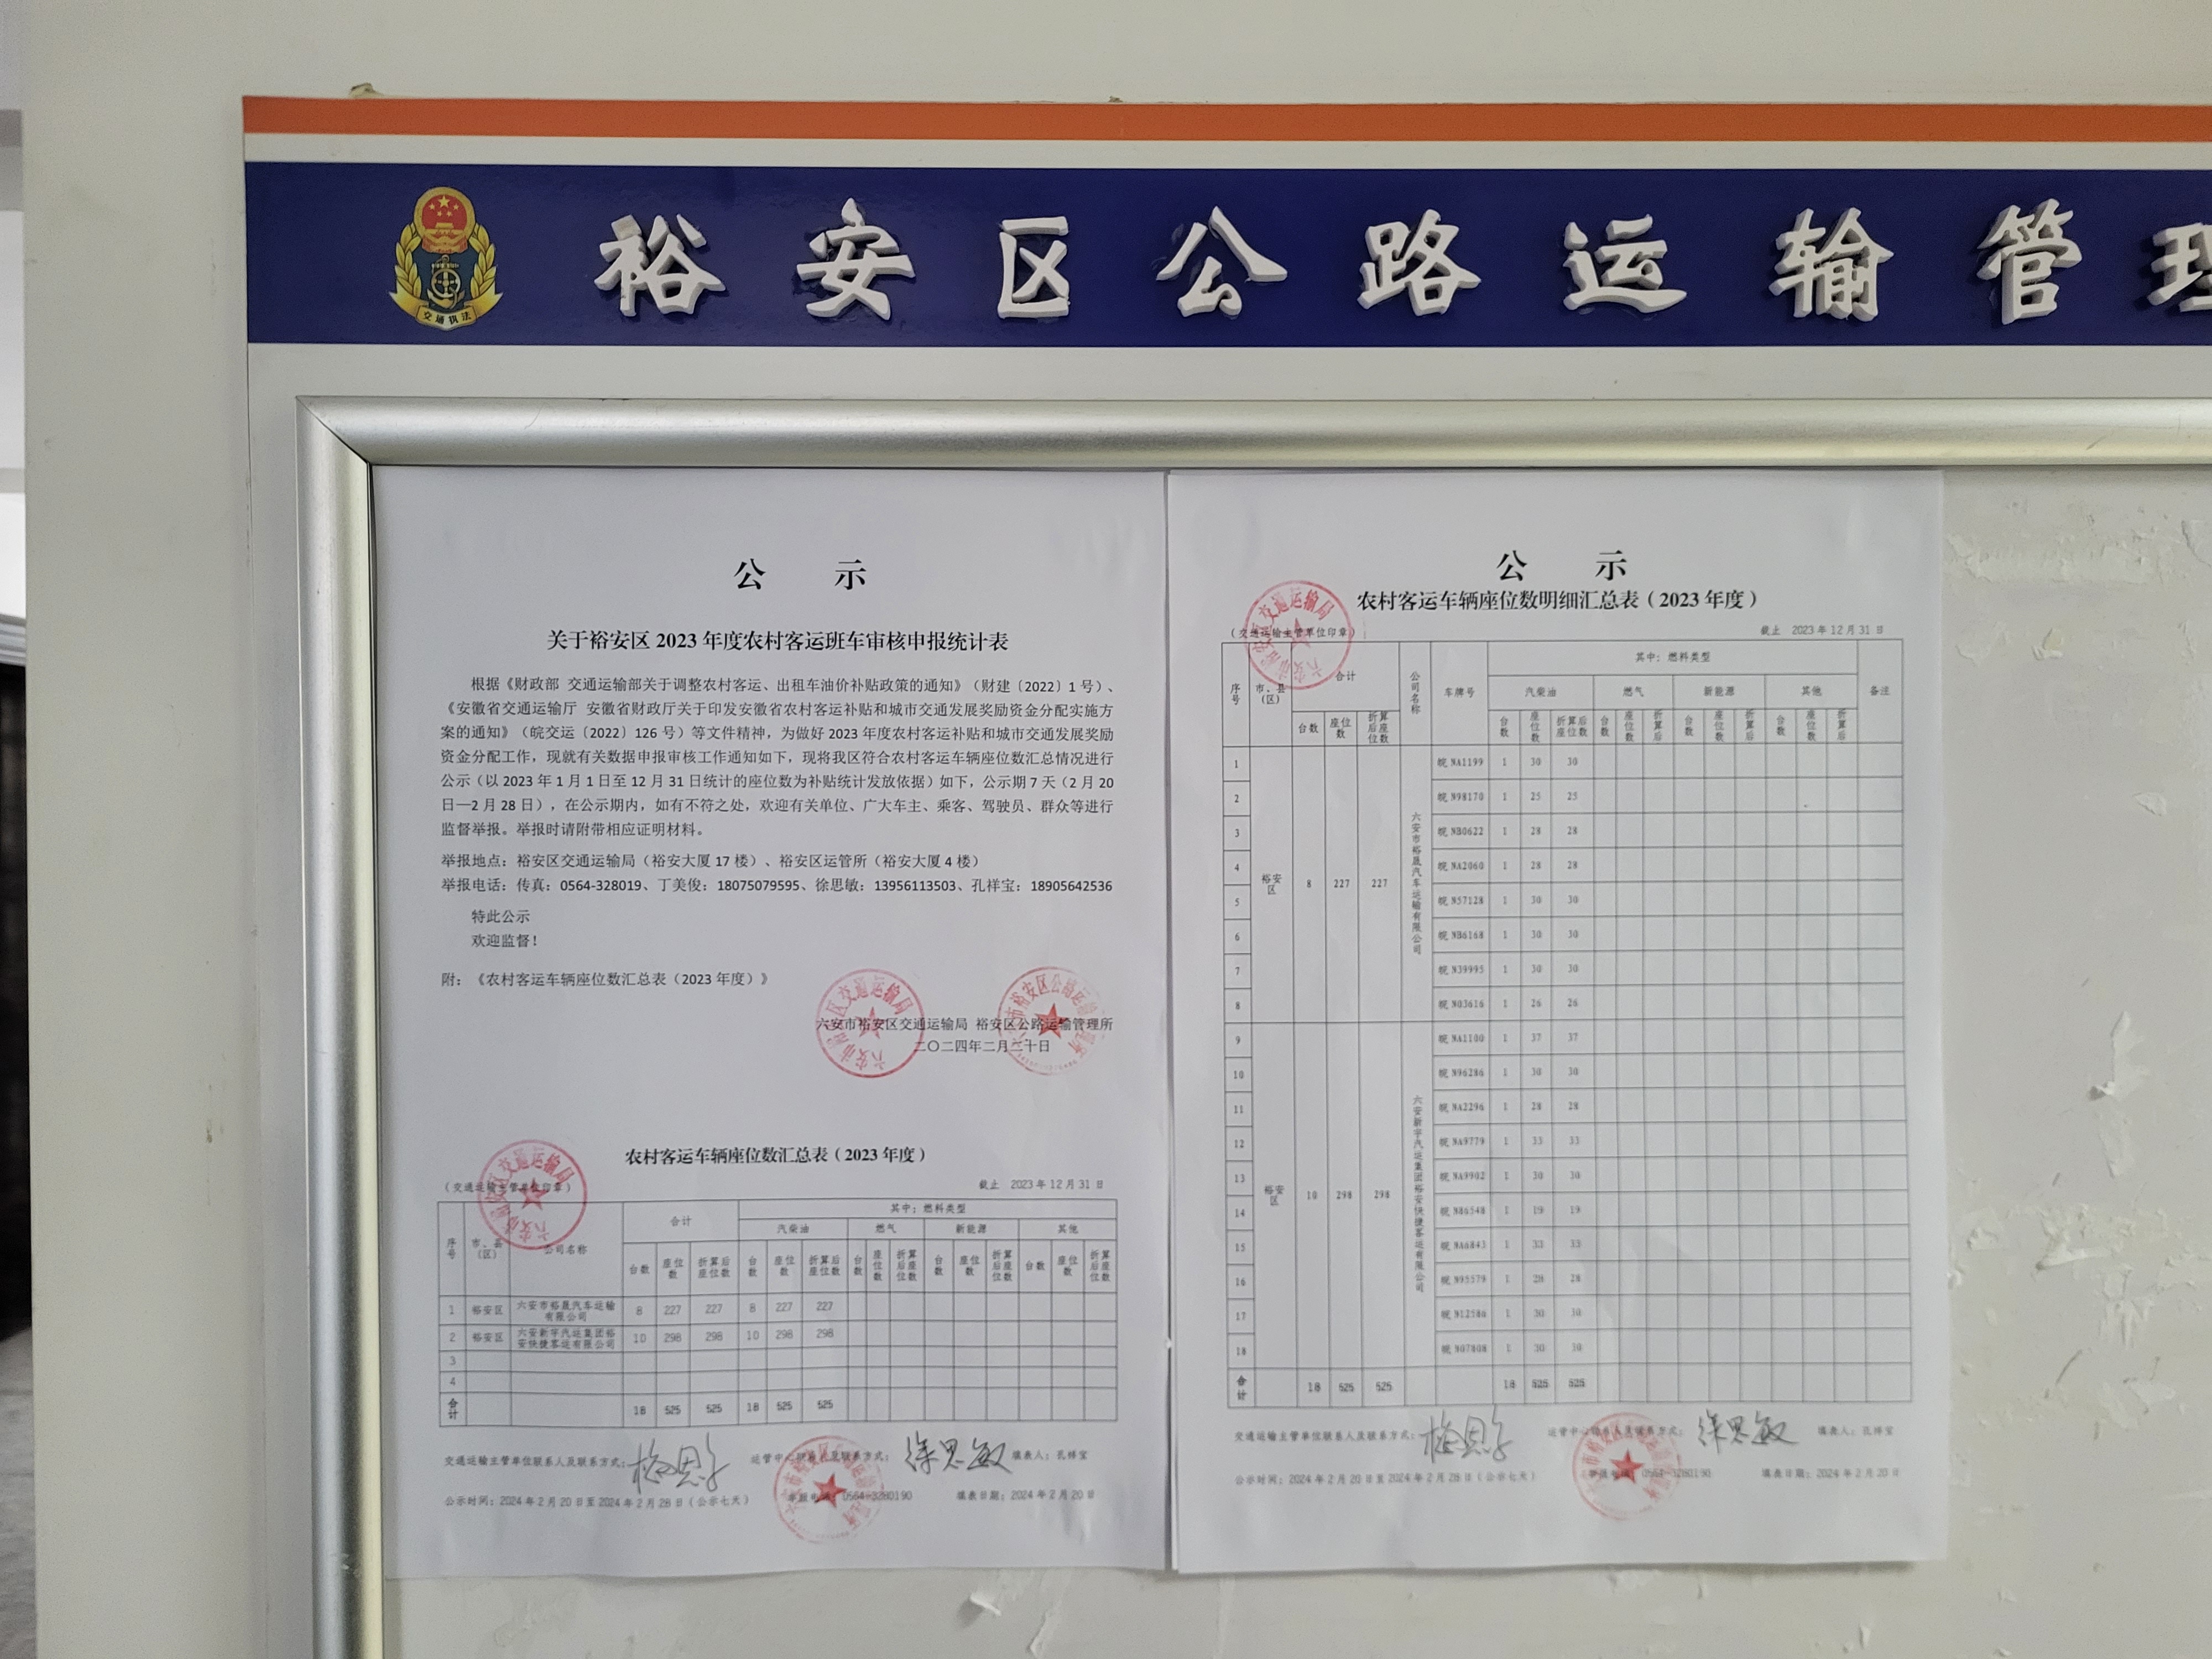 裕安区公路运输管理
交通执法
公 示
关于裕安区 2023 年度农村客运班车审核申报统计表
根据《财政部 交通运输部关于调整农村客运、出租车油价补贴政策的通知》（财建〔2022〕1 号）、
《安徽省交通运输厅 安徽省财政厅关于印发安徽省农村客运补贴和城市交通发展奖励资金分配实施方
案的通知》（皖交运〔2022〕126 号）等文件精神，为做好 2023 年度农村客运补贴和城市交通发展奖励
资金分配工作，现就有关数据申报审核工作通知如下，现将我区符合农村客运车辆座位数汇总情况进行
公示（以 2023 年 1 月 1 日至 12 月 31 日统计的座位数为补贴统计发放依据）如下，公示期 7 天（2 月 20
日—2 月 28 日），在公示期内，如有不符之处，欢迎有关单位、广大车主、乘客、驾驶员、群众等进行
监督举报。举报时请附带相应证明材料。
举报地点：裕安区交通运输局（裕安大厦 17 楼）、裕安区运管所（裕安大厦 4 楼）
举报电话：传真：0564-328019、丁美俊：18075079595、徐思敏：13956113503、孔祥宝：18905642536
特此公示
欢迎监督！
附：《农村客运车辆座位数汇总表（2023 年度）》
六安市裕安区交通运输局 裕安区公路运输管理所
二〇二四年二月二十日
农村客运车辆座位数汇总表（2023 年度）
（交通运输主管单位印章） 截止 2023 年 12 月 31 日
序号 市、县（区） 公司名称 合计 其中：燃料类型
汽柴油 燃气 新能源 其他
台数 座位数 折算后座位数 台数 座位数 折算后座位数 台数 座位数 折算后座位数 台数 座位数 折算后座位数 台数 座位数 折算后座位数
1 裕安区 六安市裕晟汽车运输有限公司 8 227 227 8 227 227
2 裕安区 六安新宇汽运集团裕安快捷客运有限公司 10 298 298 10 298 298
3
4
合计 18 525 525 18 525 525
交通运输主管单位联系人及联系方式： 运管中心联系人及联系方式：徐思敏 填表人：孔祥宝
公示时间：2024 年 2 月 20 日至 2024 年 2 月 28 日（公示七天） 举报电话：0564-3280190 填表日期：2024 年 2 月 20 日
公 示
农村客运车辆座位数明细汇总表（2023 年度）
（交通运输主管单位印章） 截止 2023 年 12 月 31 日
序号 市、县（区） 合计 公司名称 车牌号 其中：燃料类型 备注
汽柴油 燃气 新能源 其他
台数 座位数 折算后座位数 台数 座位数 折算后座位数 台数 座位数 折算后 台数 座位数 折算后 台数 座位数 折算后
裕安区 8 227 227 六安市裕晟汽车运输有限公司
1 皖 NA1199 1 30 30
2 皖 N98170 1 25 25
3 皖 NB0622 1 28 28
4 皖 NA2060 1 28 28
5 皖 N57128 1 30 30
6 皖 NB6168 1 30 30
7 皖 N39995 1 30 30
8 皖 N03616 1 26 26
裕安区 10 298 298 六安新宇汽运集团裕安快捷客运有限公司
9 皖 NA1100 1 37 37
10 皖 N96286 1 30 30
11 皖 NA2296 1 28 28
12 皖 NA9779 1 33 33
13 皖 NA9902 1 30 30
14 皖 N86548 1 19 19
15 皖 NA6843 1 33 33
16 皖 N95579 1 28 28
17 皖 N12580 1 30 30
18 皖 N07808 1 30 30
合计 18 525 525 18 525 525
交通运输主管单位联系人及联系方式： 运管中心联系人及联系方式：徐思敏 填表人：孔祥宝
公示时间：2024 年 2 月 20 日至 2024 年 2 月 28 日（公示七天） 举报电话：0564-3280190 填表日期：2024 年 2 月 20 日